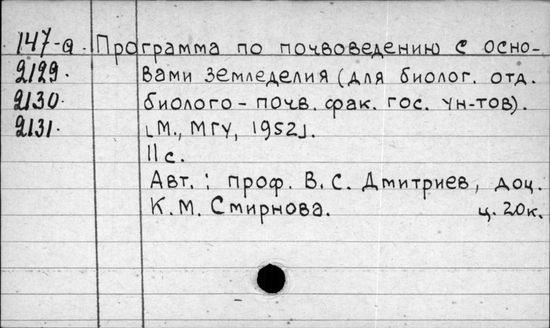 147-а. Программа по почвоведению с осно-
2129. вами земледелия (для биолог. отд.
2130. биолого-почв. фак. гос. ун-тов).
2131. [М., МГУ, 1952].
11с.
Авт.: проф. В.С. Дмитриев, доц.
К.М. Смирнова. ц. 20к.